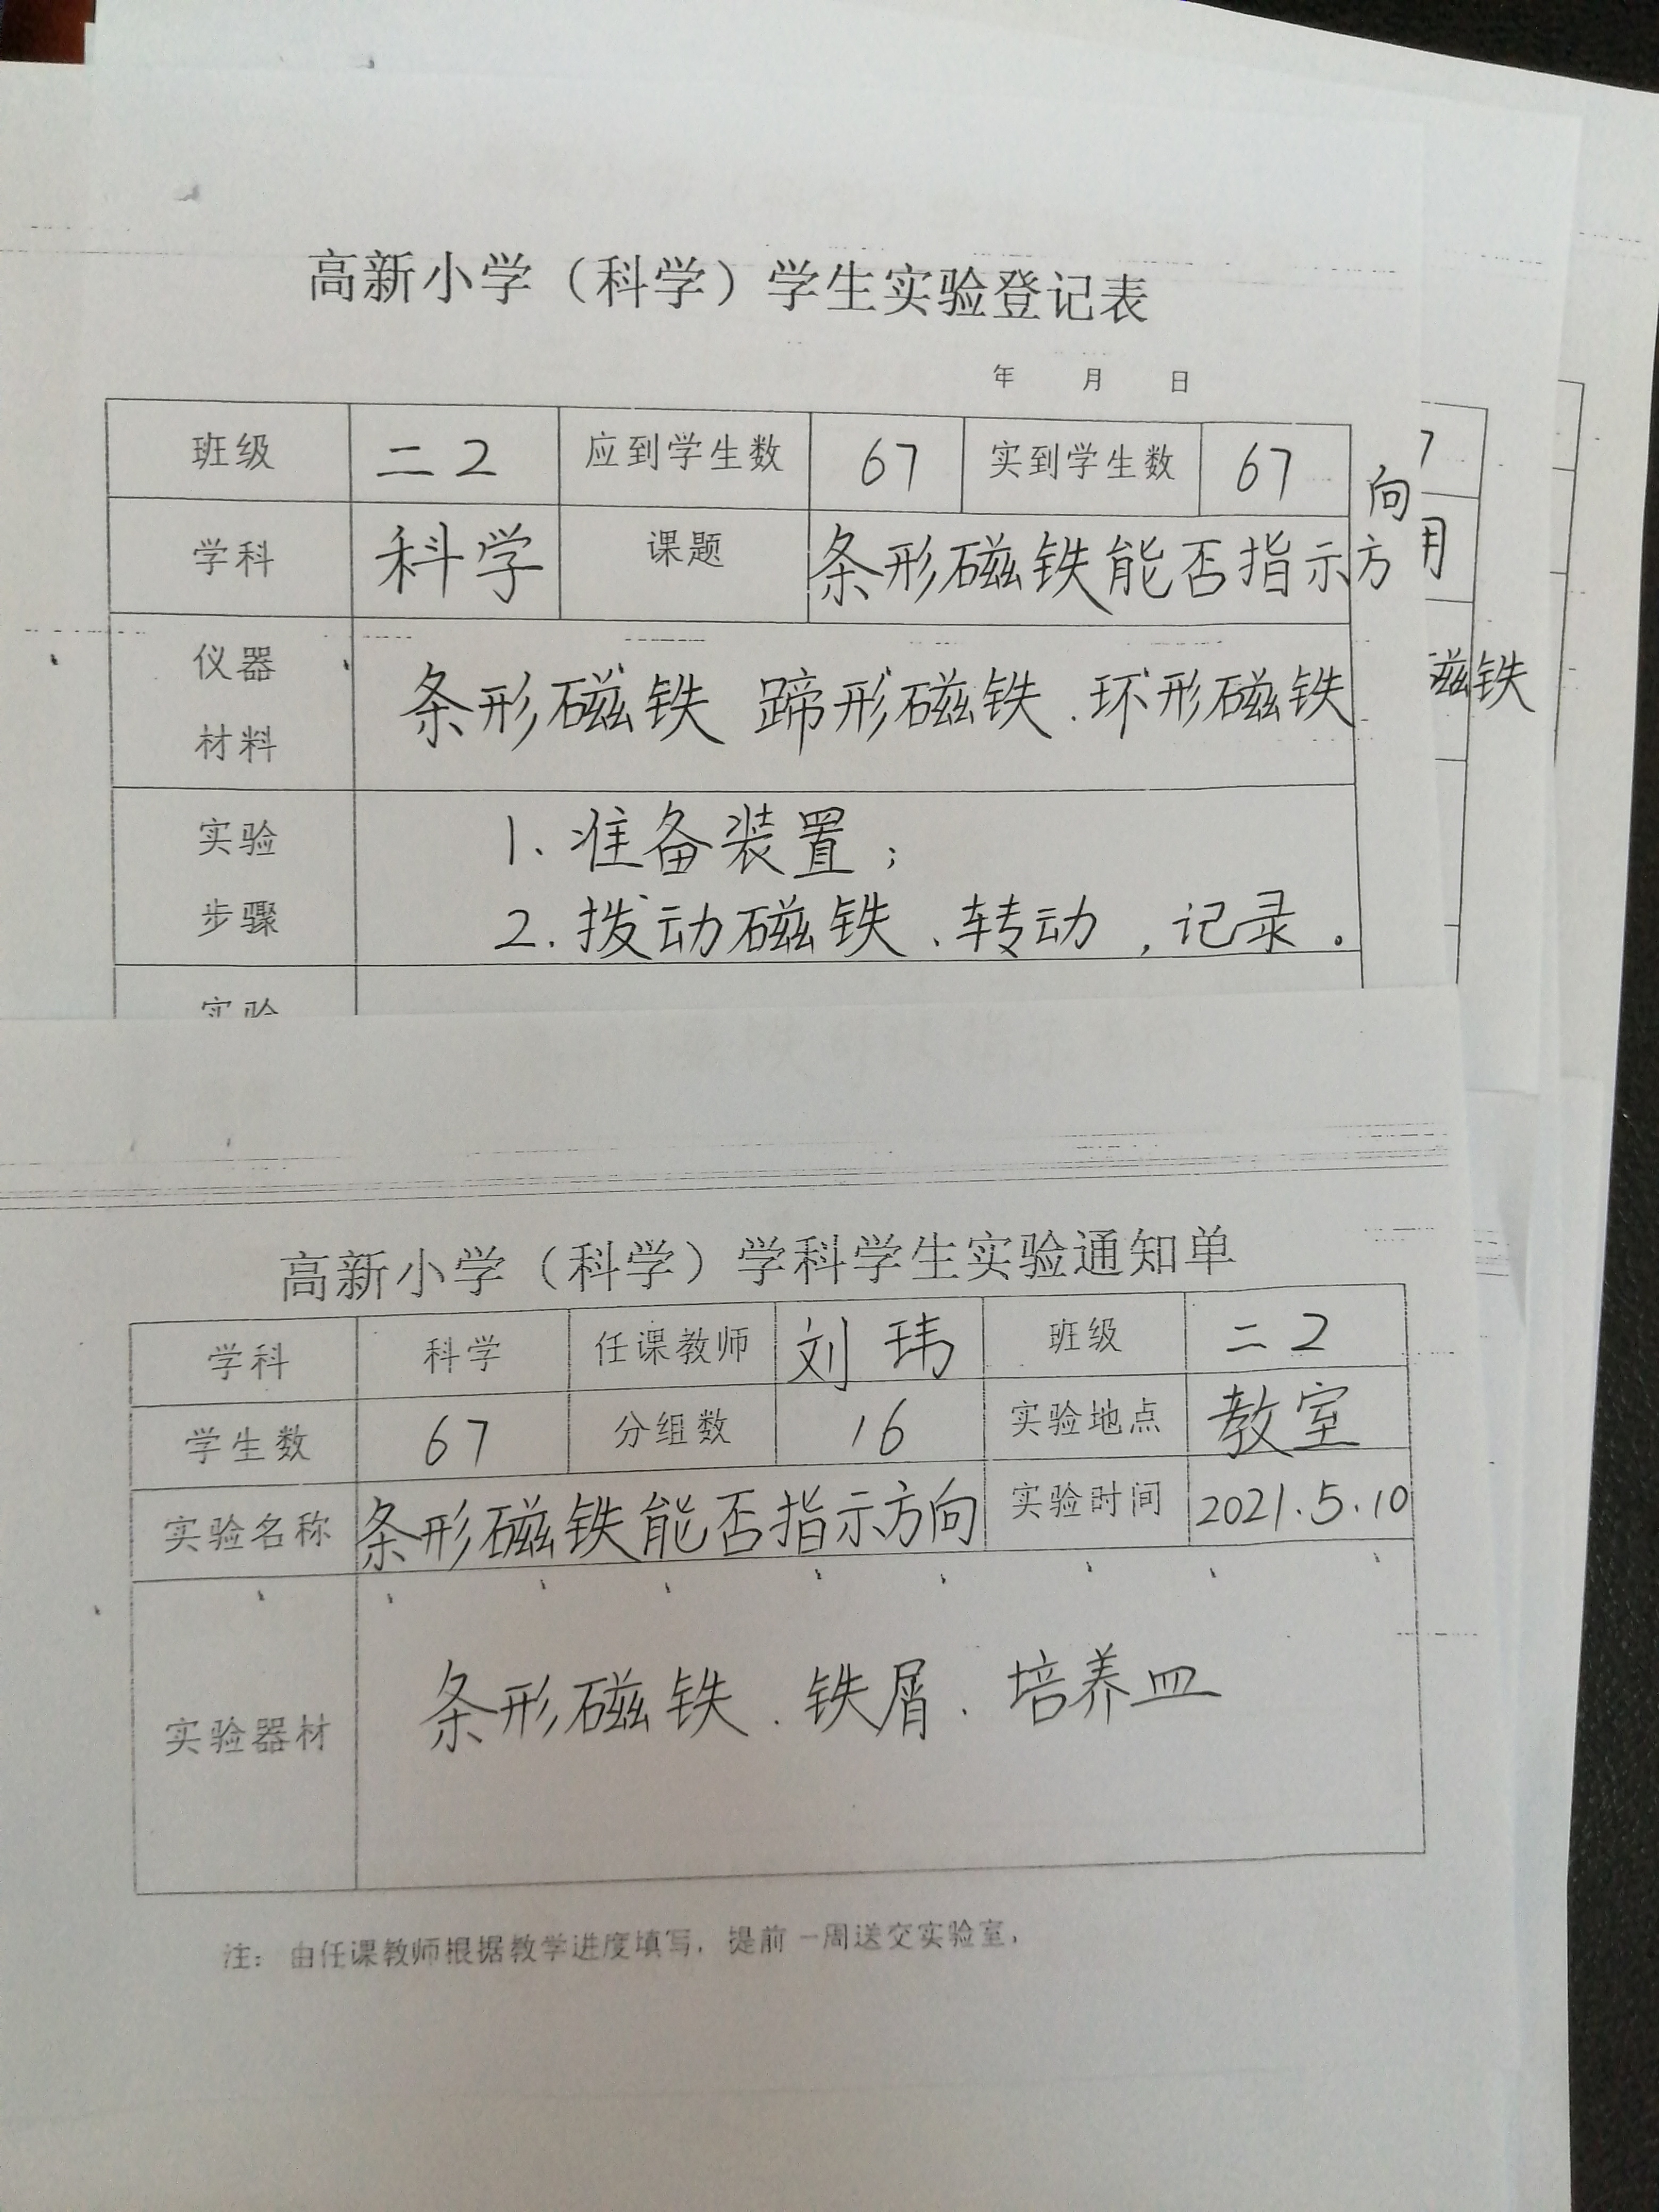 高新小学（科学）学生实验登记表
年 月 日
班级 二2 应到学生数 67 实到学生数 67
学科 科学 课题 条形磁铁能否指示方向
仪器材料 条形磁铁 蹄形磁铁、环形磁铁
实验步骤 1、准备装置；
2.拨动磁铁、转动，记录。
实验
7
用
磁铁
高新小学（科学）学科学生实验通知单
学科 科学 任课教师 刘玮 班级 二2
学生数 67 分组数 16 实验地点 教室
实验名称 条形磁铁能否指示方向 实验时间 2021.5.10
实验器材 条形磁铁、铁屑、培养皿
注：由任课教师根据教学进度填写，提前一周送交实验室，